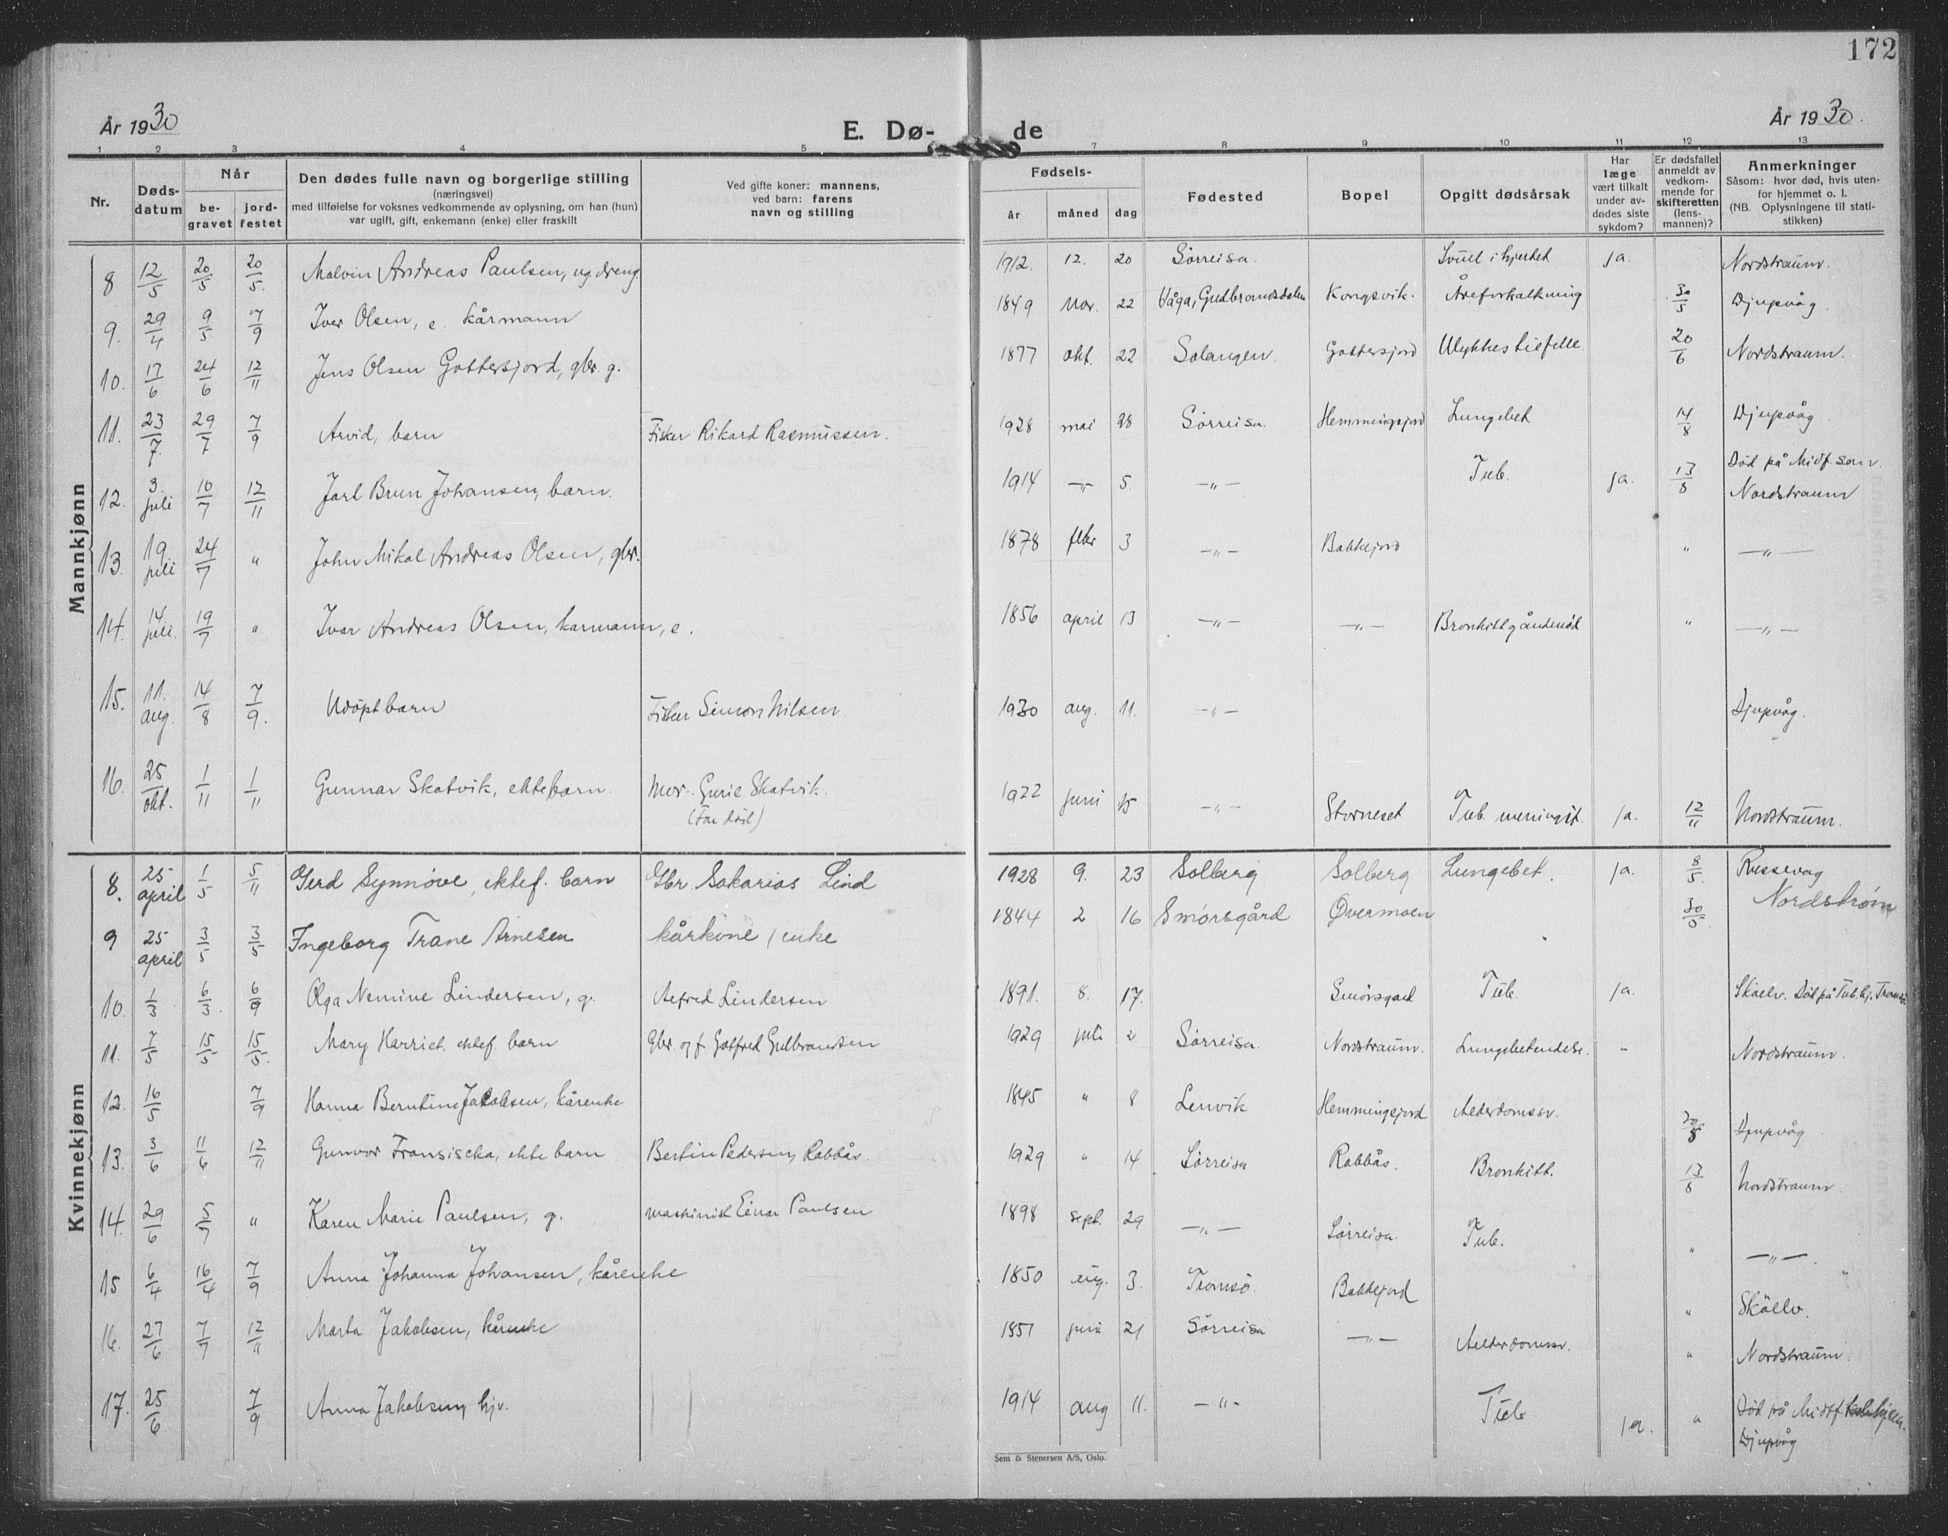 172
År 1930
E. Dø-
de
År 1930.
1 2 3 4 5 7 8 9 10 11 12 13
Nr.
Døds-
datum
Når
be-
gravet
jord-
festet
Den dødes fulle navn og borgerlige stilling
(næringsvei)
med tilføielse for voksnes vedkommende av oplysning, om han (hun)
var ugift, gift, enkemann (enke) eller fraskilt
Ved gifte koner: mannens,
ved barn: farens
navn og stilling
Fødsels-
år
måned
dag
Fødested
Bopel
Opgitt dødsårsak
Har
læge
vært tilkalt
under av-
dødes siste
sykdom?
Er dødsfallet
anmeldt av
vedkom-
mende for
skifteretten
(lens-
mannen)?
Anmerkninger
Såsom: hvor død, hvis uten-
for hjemmet o. l.
(NB. Oplysningene til stati-
stikken)
Mannkjønn
8 12/5 20/5 20/5. Malvin Andreas Paulsen, ug. dreng 1912. 12. 20 Sørreisa. Svull i hjertet ja. Nordstraum.
9. 29/4 9/5 7/9 Iver Olsen, e. kårmann 1849 Nov. 22 Våga, Gudbrandsdalen Kongsvik. Åreforkalkning 30/5 Djupvåg.
10. 17/6 24/6 12/11 Jens Olsen Gottersjord, gbr. g. 1877 okt. 22 Salangen. Gottersjord Ulykkestilfelle 20/6 Nordstraum.
11. 23/7 29/7 7/9 Arvid, barn Fisker Rikard Rasmussen. 1928 mai 28 Sørreisa. Hemmingsjord Lungebet 14/8 Djupvåg
12. 3. juli 10/7 12/11 Jarl Brun Johansen, barn. 1914 —„— 5. —„— Tub. ja. 13/8 Død på Midf. san.
Nordstraum
13. 19. juli 24/7 „ John Mikal Andreas Olsen, gbr. 1878 febr 3 —„— Bakkejord „ —„—
14. 14 juli. 19/7 „ Ivar Andreas Olsen, karmann, e. 1856 april 13 —„— —„— Bronkitt og åndenød „ —„—
15. 11. aug. 14/8 7/9. Udöpt barn Fisker Simon Nilsen. 1930 aug. 11. —„— Djupvåg.
16. 25 okt. 1/11 1/11 Gunnar Skatvik, ektebarn. Mor. Gurie Skatvik. 1922 juni 15 —„— Storneset Tub. meningit. ja. 12/11 Nordstraum.
(Far død)
Kvinnekjønn
8. 25- april 1/5 5/11 Gerd Synnøve, ektef. barn Gbr Sakarias Lind 1928 9. 23 Solberg Solberg Lungebet. ja. 8/5. Russevåg
Nordstrøm
9 25 april 3/5 3/5 Ingeborg Trane Arnesen kårkone / enke 1844 2 16 Smørsgård Øvermoen 30/5
10. 1/3 6/3 6/9 Olga Nemine Lindersen, g. Alfred Lindersen 1891. 8. 17. Smörsgard Tub. ja. Skælv. Död på Tub. hj. Tromsø
11. 7/5 15/5 15/5. Mary Harriet, ektef. barn Gbr. og f. Gotfred Gulbrantsen 1929 juli 2 Sørreisa. Nordstraum. Lungebetendelse. „ Nordstraum.
12. 16/5 7/9 Hanna Berntine Jakobsen, kårenke 1845 „ 8 Lenvik Hemmingsjord Aelderdomssv. 20/8 Djupvåg
13. 3/6 11/6 12/11 Gunvor Fransiscka, ekte barn Bertin Pedersen, Rabbås. 1929 „ 14 Sørreisa Rabbås. Bronkitt. 13/8 Nordstraum.
14. 29/6 5/7 „ Karen Marie Paulsen, g. maskinist Einar Paulsen 1898 sept. 29 —„— Sørreisa Tub. „ —„—
15 6/4 16/4 7/9 Anna Johanna Johansen, kårenke 1850 aug. 3. Tromsö. Bakkejord „ Skälv.
16. 27/6 7/7 12/11 Marta Jakobsen, kårenke 1851 juni 21 Sörreisa —„— Aelderdomssv. „ Nordstraum.
17. 25/6 7/9 Anna Jakobsen, hjv. 1914 aug 11. —„— Tub. ja. „ Död på Midtf.
Djupvåg
Sem & Stenersen A/S, Oslo.